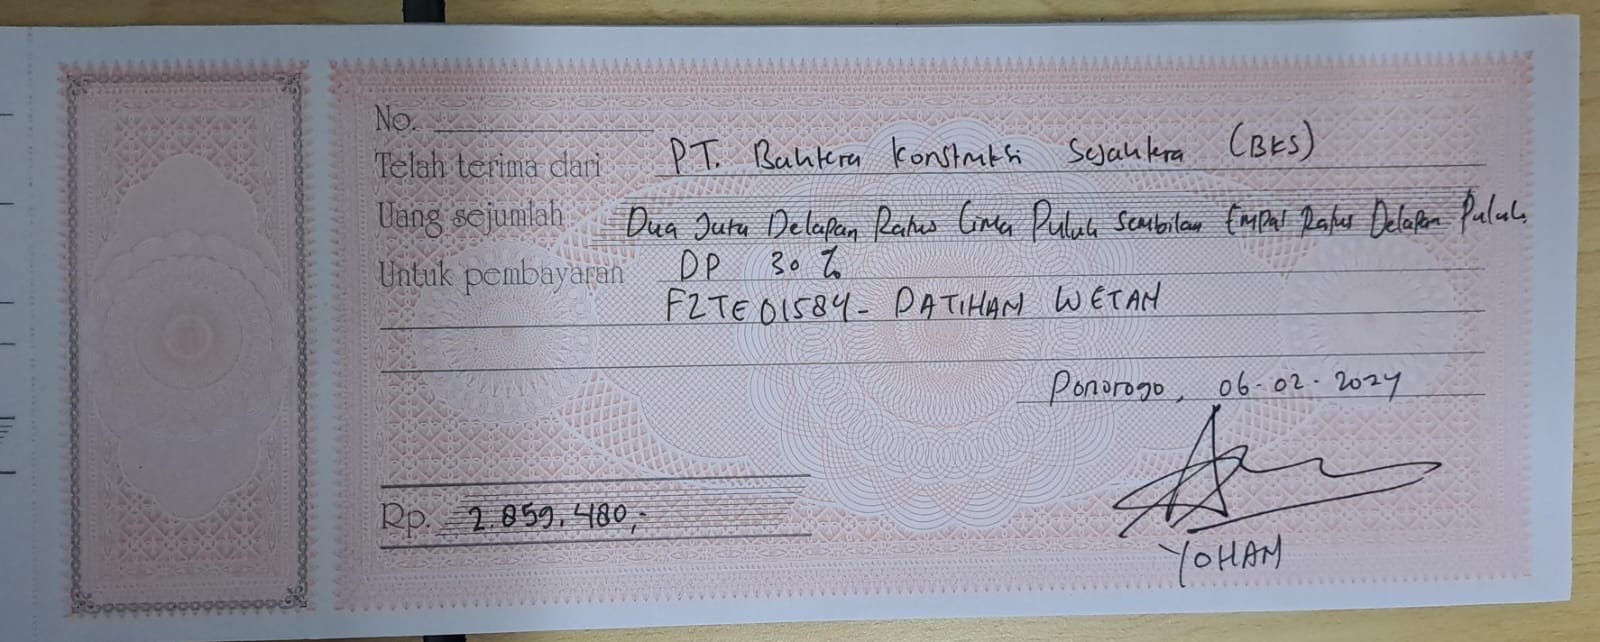 No.
Telah terima dari PT. Bahtera Konstruksi Sejahtera (BKS)
Uang sejumlah Dua Juta Delapan Ratus Lima Puluh Sembilan Empat Ratus Delapan Puluh
Untuk pembayaran DP 30 %
FZTE01584 - PATIHAN WETAN
Ponorogo, 06-02-2024
Rp. 2.859.480,-
YOHAN